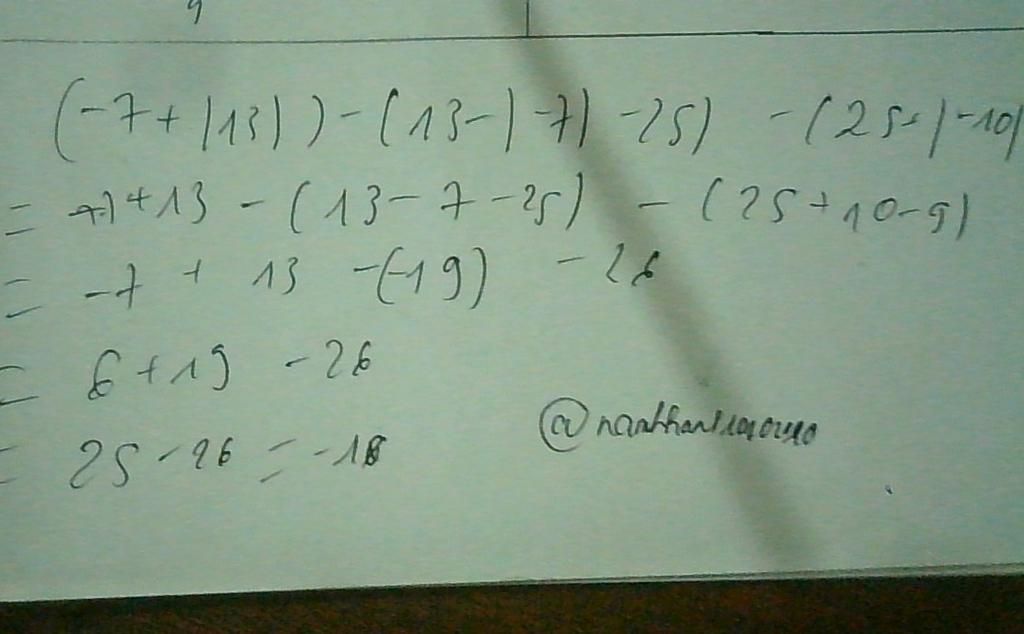 9
(-7+|13|)-(13-|-7|-25) -(25+|-10|
= -7+13 -(13-7-25) -(25+10-9)
= -7 + 13 -(-19) -26
= 6+19 -26
= 25-26 = -1